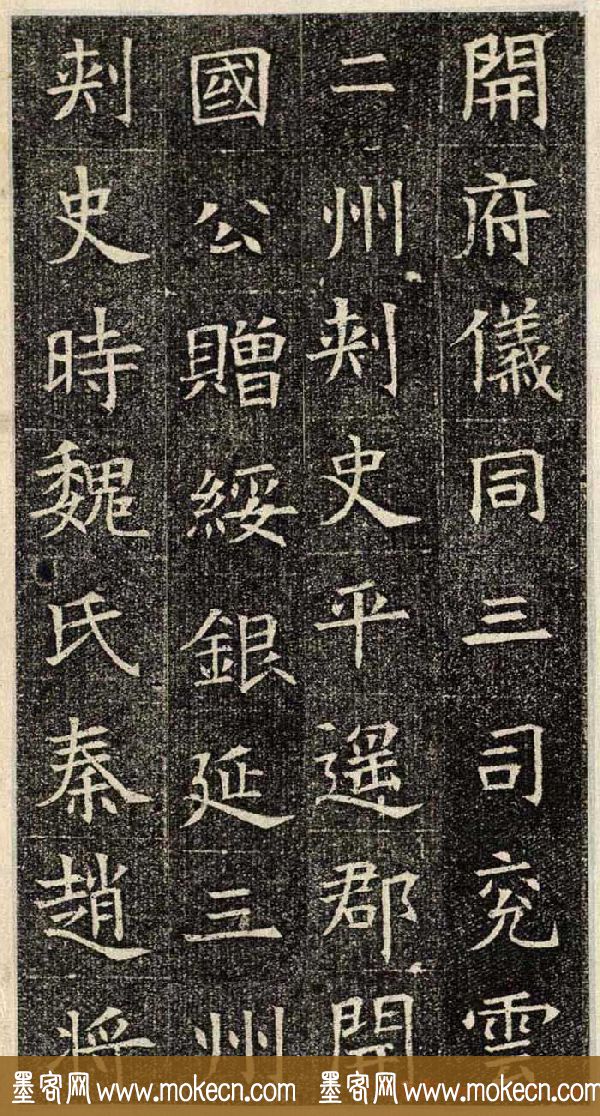 開府儀同三司兖雲
二州刾史平遥郡開
國公贈綏銀延三州
刾史時魏氏秦趙将
墨客网 www.mokecn.com 墨客网 www.mokecn.com